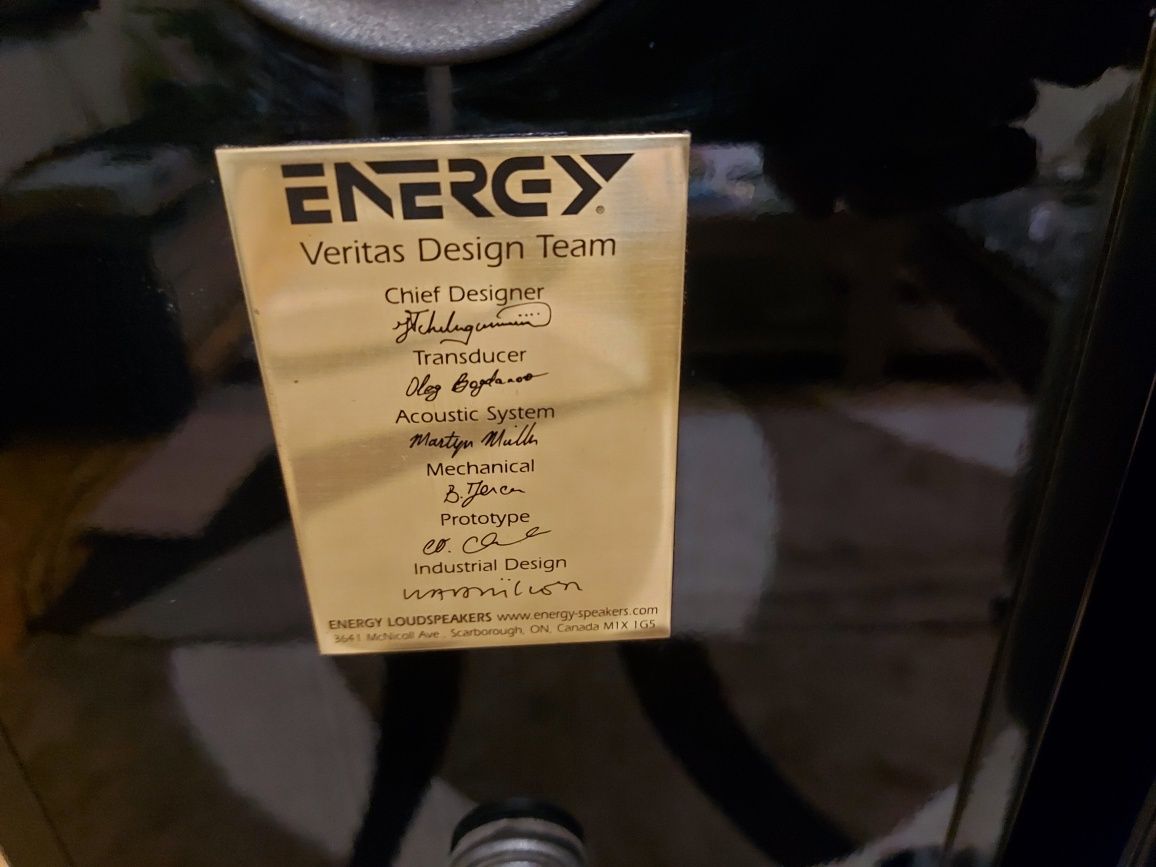 ENERGY®
Veritas Design Team
Chief Designer
Transducer
Oleg Bogdanov
Acoustic System
Martyn Miller
Mechanical
Prototype
Industrial Design
ENERGY LOUDSPEAKERS www.energy-speakers.com
3641 McNicoll Ave., Scarborough, ON, Canada M1X 1G5